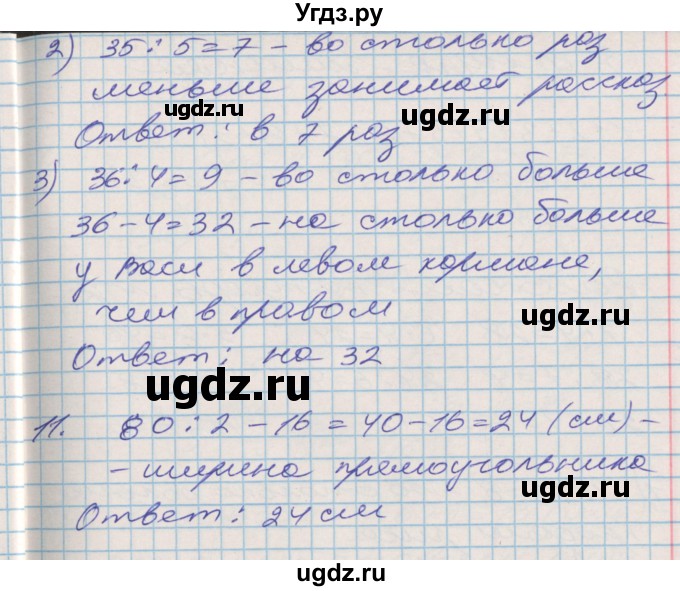 Угдз.ру
2) 35 : 5 = 7 – во столько раз
меньше занимает рассказ
ugdz.ru ugdz.ru
Ответ: в 7 раз
3) 36 : 4 = 9 – во столько больше
36 – 4 = 32 – на столько больше
у Васи в левом кармане,
ugdz.ru
чем в правом
ugdz.ru
Ответ: на 32
ugdz.ru
11. 80 : 2 – 16 = 40 – 16 = 24 (см) –
– ширина прямоугольника
ugdz.ru
Ответ: 24 см
ugdz.ru